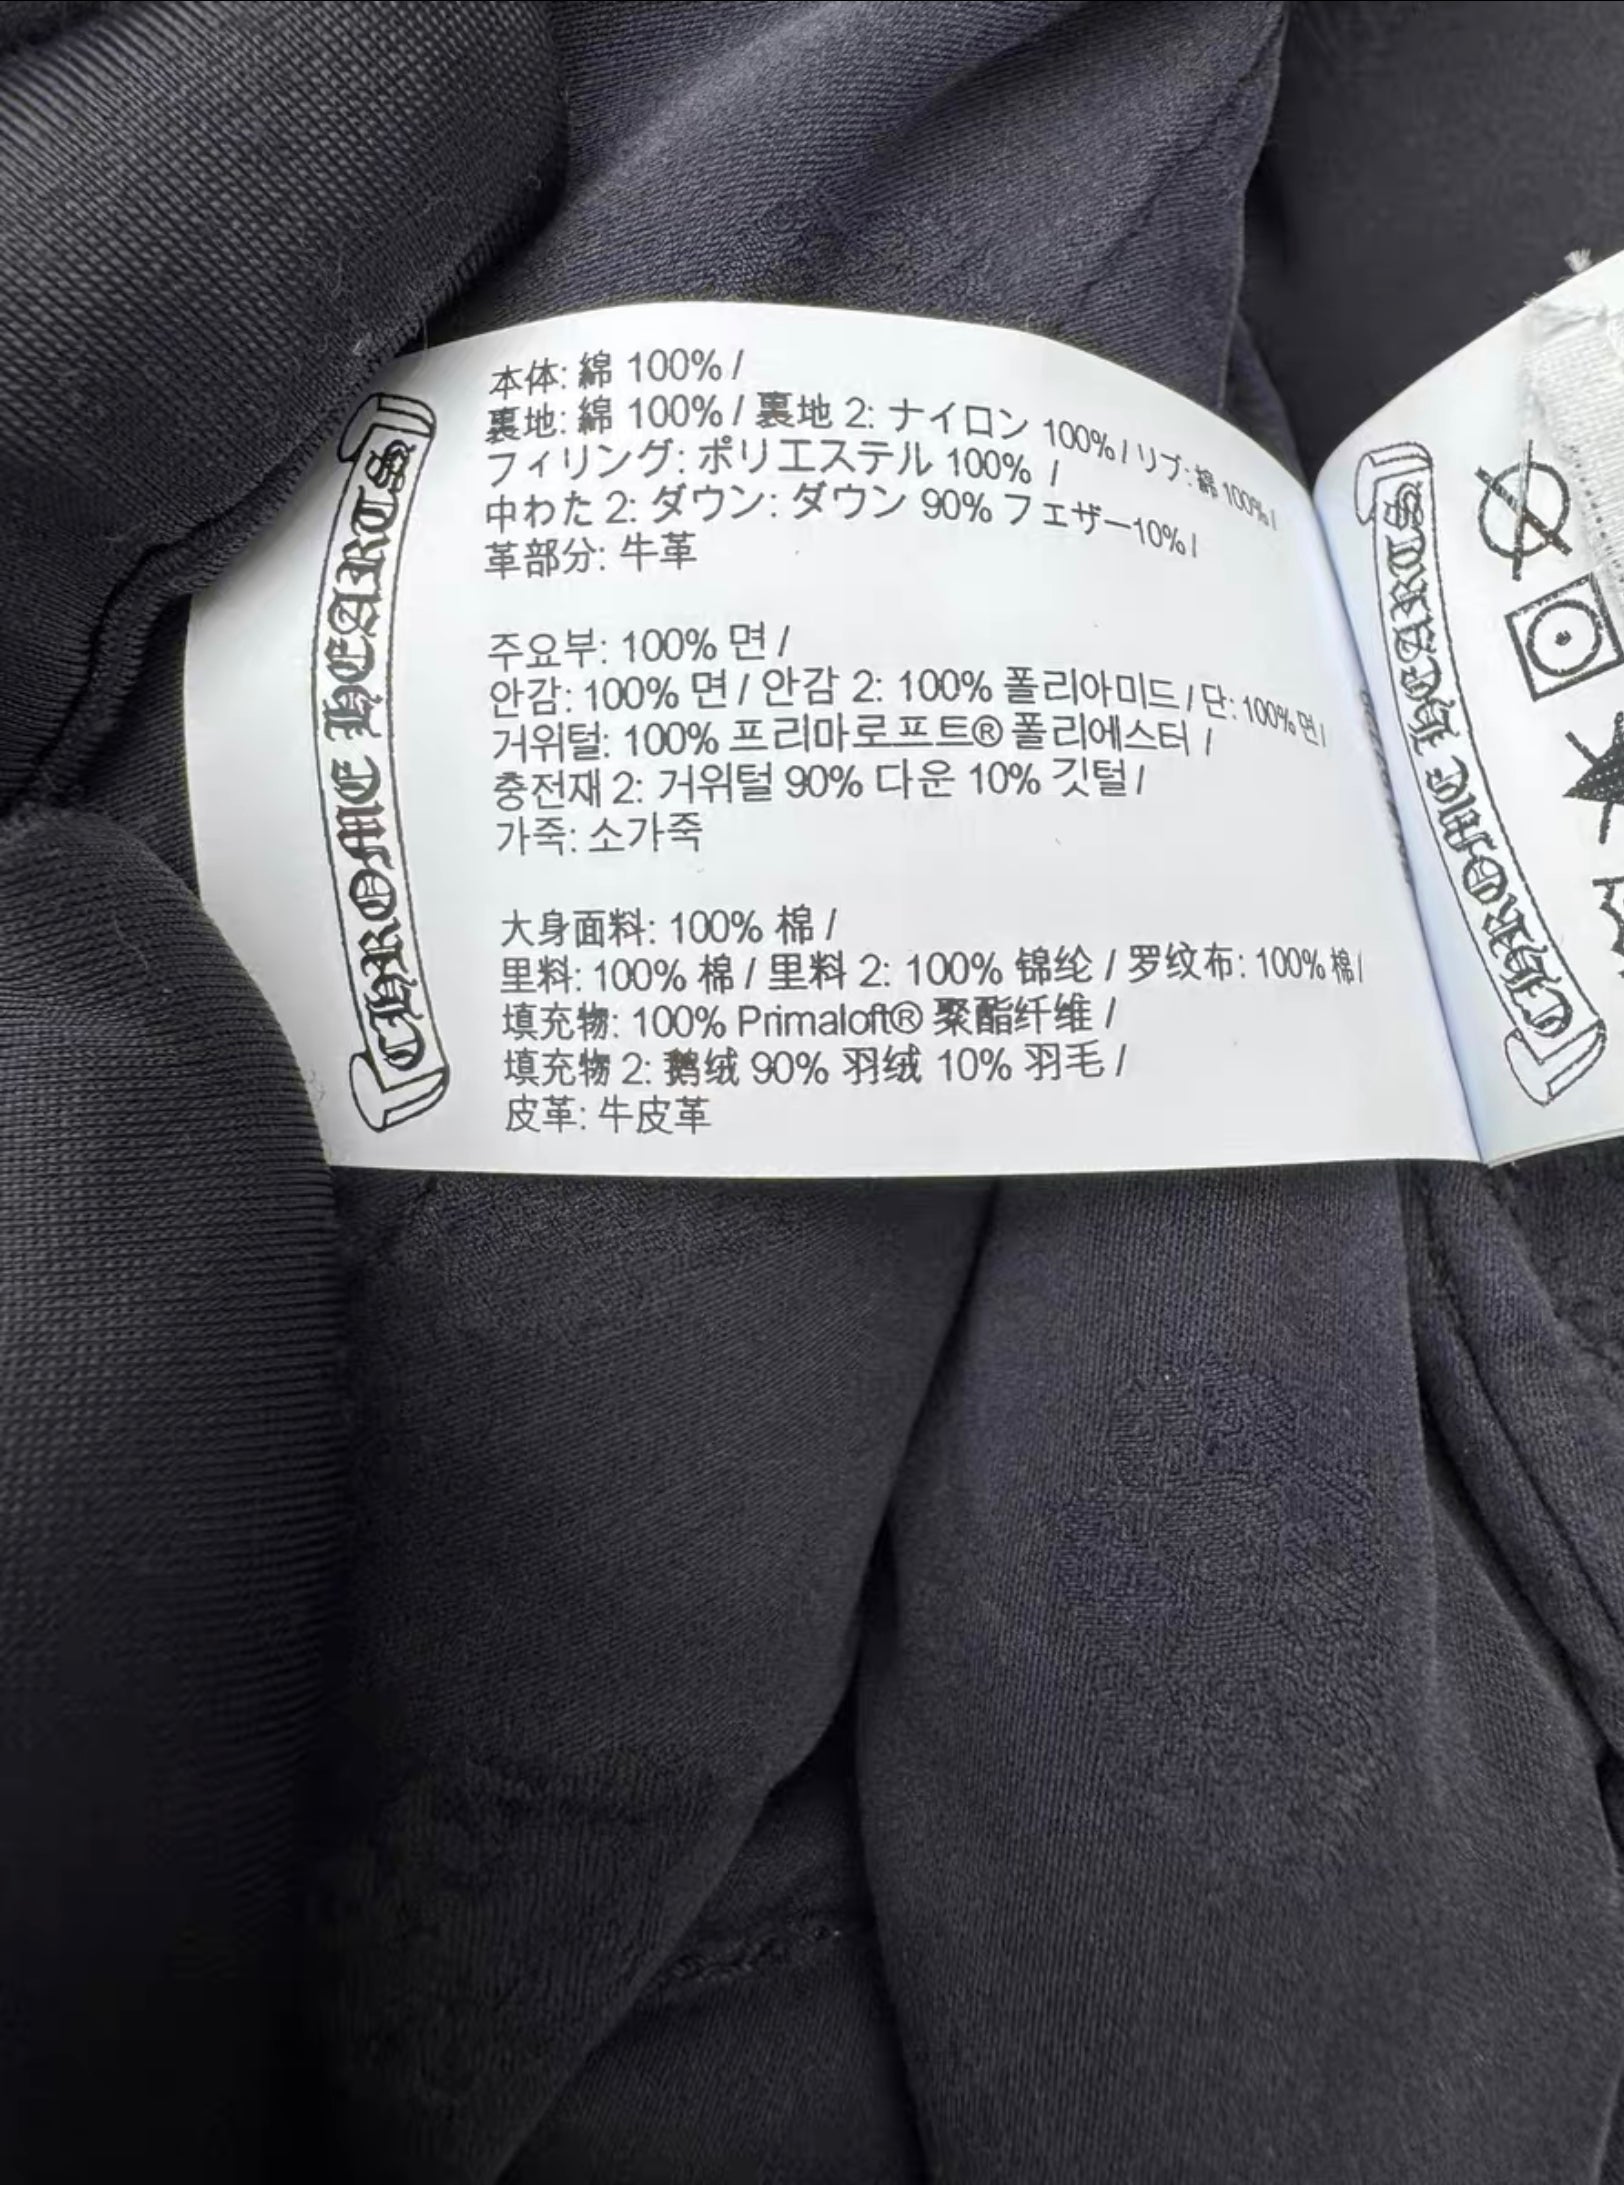 本体: 綿 100% /
裏地: 綿 100% / 裏地 2: ナイロン 100% / リブ: 綿 100% /
フィリング: ポリエステル 100% /
中わた 2: ダウン: ダウン 90% フェザー10% /
革部分: 牛革
주요부: 100% 면 /
안감: 100% 면 / 안감 2: 100% 폴리아미드 / 단: 100% 면 /
거위털: 100% 프리마로프트® 폴리에스터 /
충전재 2: 거위털 90% 다운 10% 깃털 /
가죽: 소가죽
大身面料: 100% 棉 /
里料: 100% 棉 / 里料 2: 100% 锦纶 / 罗纹布: 100% 棉 /
填充物: 100% Primaloft® 聚酯纤维 /
填充物 2: 鹅绒 90% 羽绒 10% 羽毛 /
皮革: 牛皮革
CHROME HEARTS
CHROME HEARTS